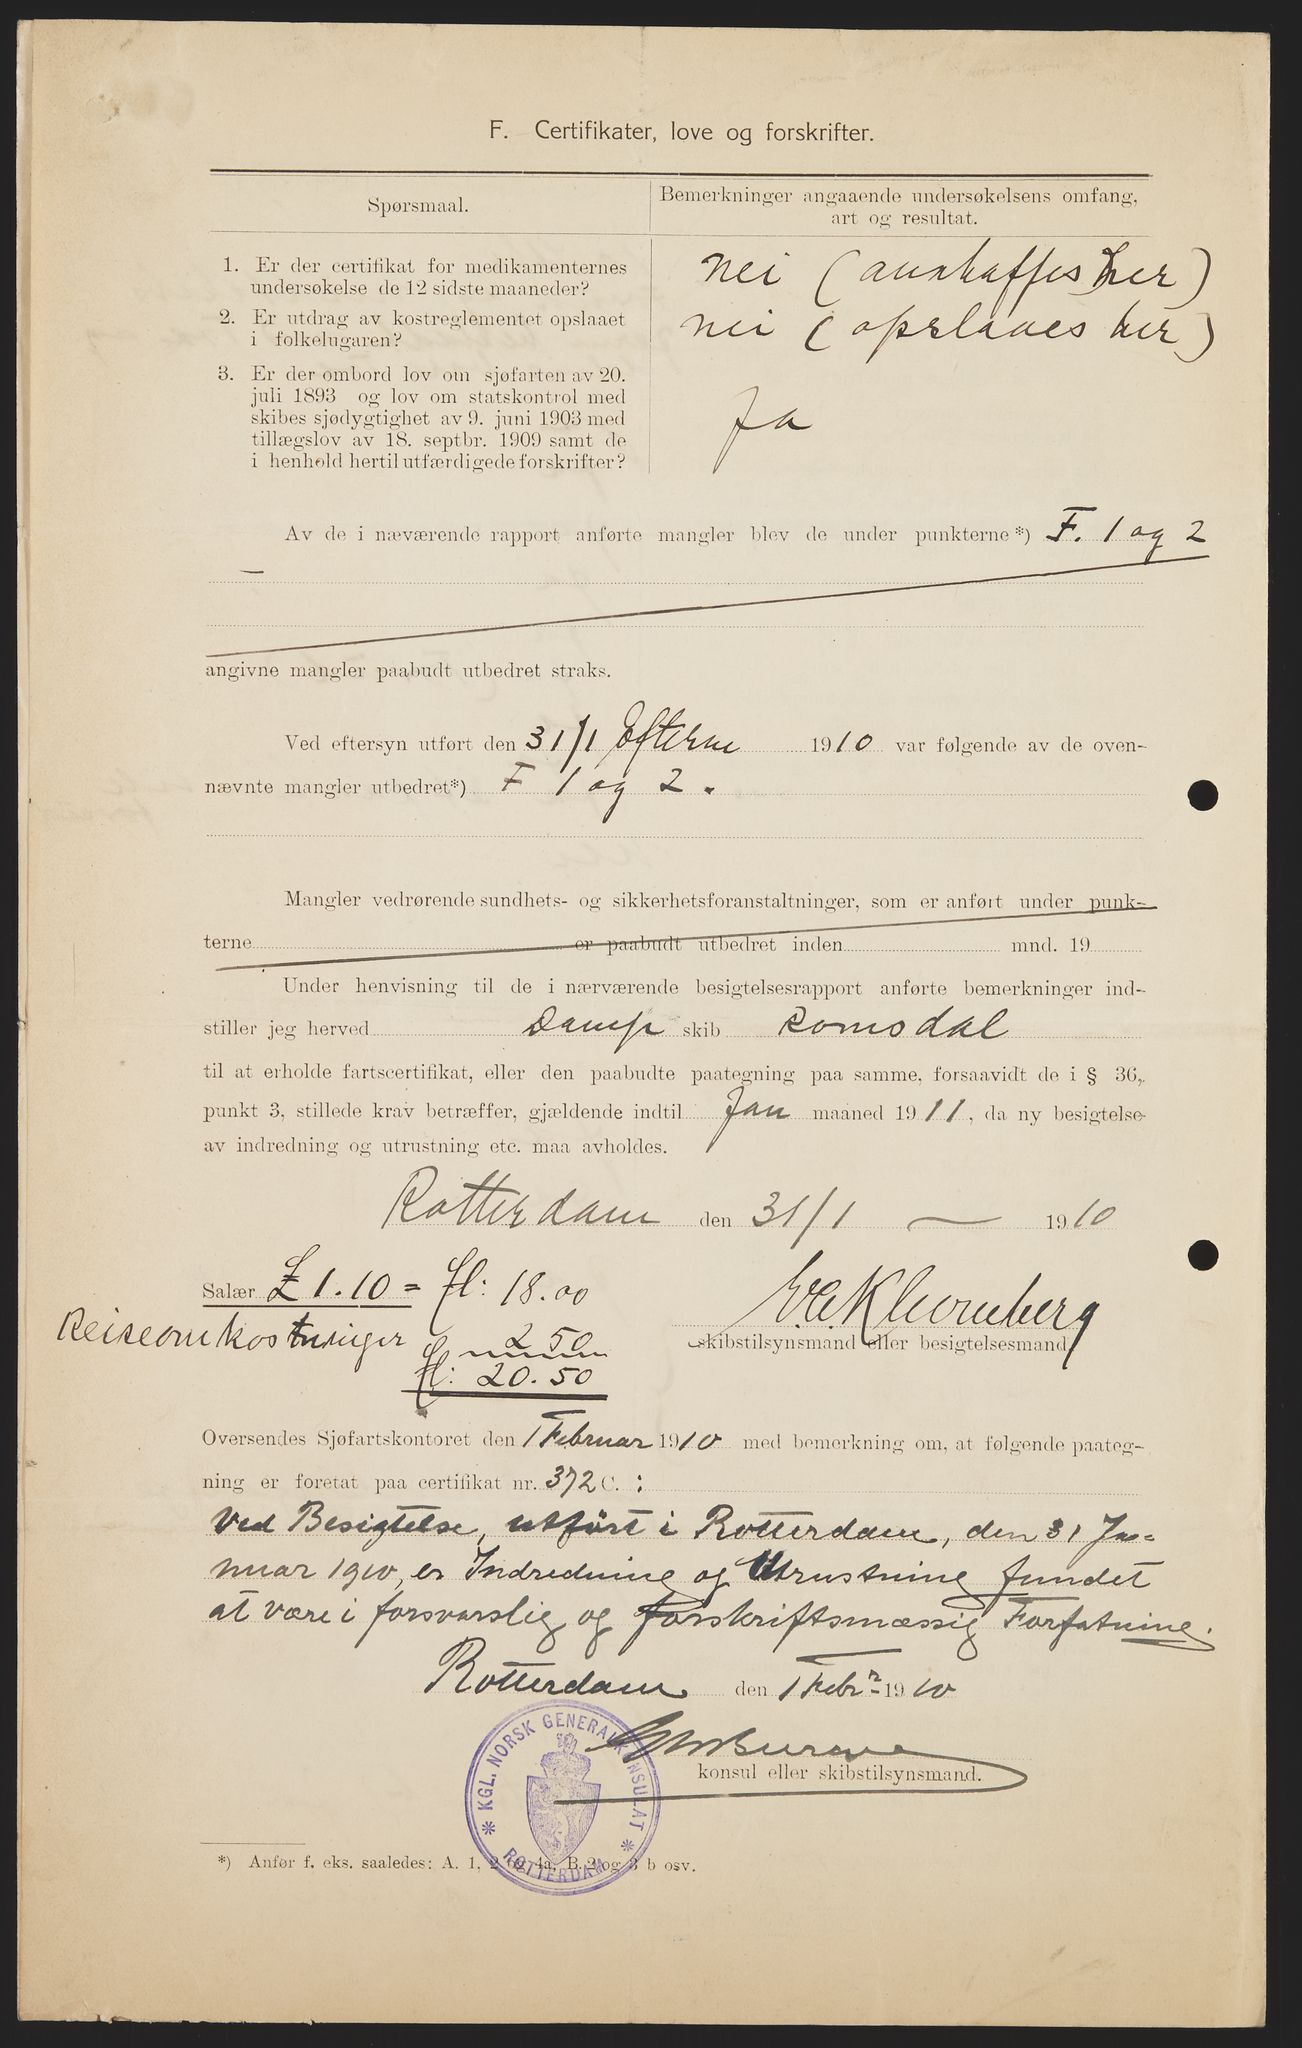 F. Certifikater, love og forskrifter.
Spørsmaal.
Bemerkninger angaaende undersøkelsens omfang,
art og resultat.
1. Er der certifikat for medikamenternes
undersøkelse de 12 sidste maaneder?
nei (anskaffes her)
2. Er utdrag av kostreglementet opslaaet
i folkelugaren?
nei (opslaaes her)
3. Er der ombord lov om sjøfarten av 20.
juli 1893 og lov om statskontrol med
skibes sjødygtighet av 9. juni 1903 med
tillægslov av 18. septbr. 1909 samt de
i henhold hertil utfærdigede forskrifter?
Ja
Av de i næværende rapport anførte mangler blev de under punkterne*) F. 1 og 2
angivne mangler paabudt utbedret straks.
Ved eftersyn utført den 31/1 Efterm 1910 var følgende av de oven-
nævnte mangler utbedret*) F 1 og 2.
Mangler vedrørende sundhets- og sikkerhetsforanstaltninger, som er anført under punk-
terne er paabudt utbedret inden mnd. 19
Under henvisning til de i nærværende besigtelsesrapport anførte bemerkninger ind-
stiller jeg herved Damp skib Romsdal
til at erholde fartscertifikat, eller den paabudte paategning paa samme, forsaavidt de i § 36,
punkt 3, stillede krav betræffer, gjældende indtil Jan maaned 1911, da ny besigtelse
av indredning og utrustning etc. maa avholdes.
Rotterdam den 31/1 — 1910
Salær £ 1.10 = fl: 18.00
Reiseomkostninger fl 2.50
fl: 20.50
skibstilsynsmand eller besigtelsesmand
Oversendes Sjøfartskontoret den 1 Februar 1910 med bemerkning om, at følgende paateg-
ning er foretat paa certifikat nr. 372 C. :
Ved Besigtelse, utført i Rotterdam, den 31 Ja=
nuar 1910, er Indredning og Utrustning fundet
at være i forsvarslig og forskriftsmæssig Forfatning.
Rotterdam den 1 Febr 1910
konsul eller skibstilsynsmand.
* KGL. NORSK GENERALKONSULAT *
ROTTERDAM
*) Anfør f. eks. saaledes: A. 1, 2 og 4a, B. 2 og 3 b osv.